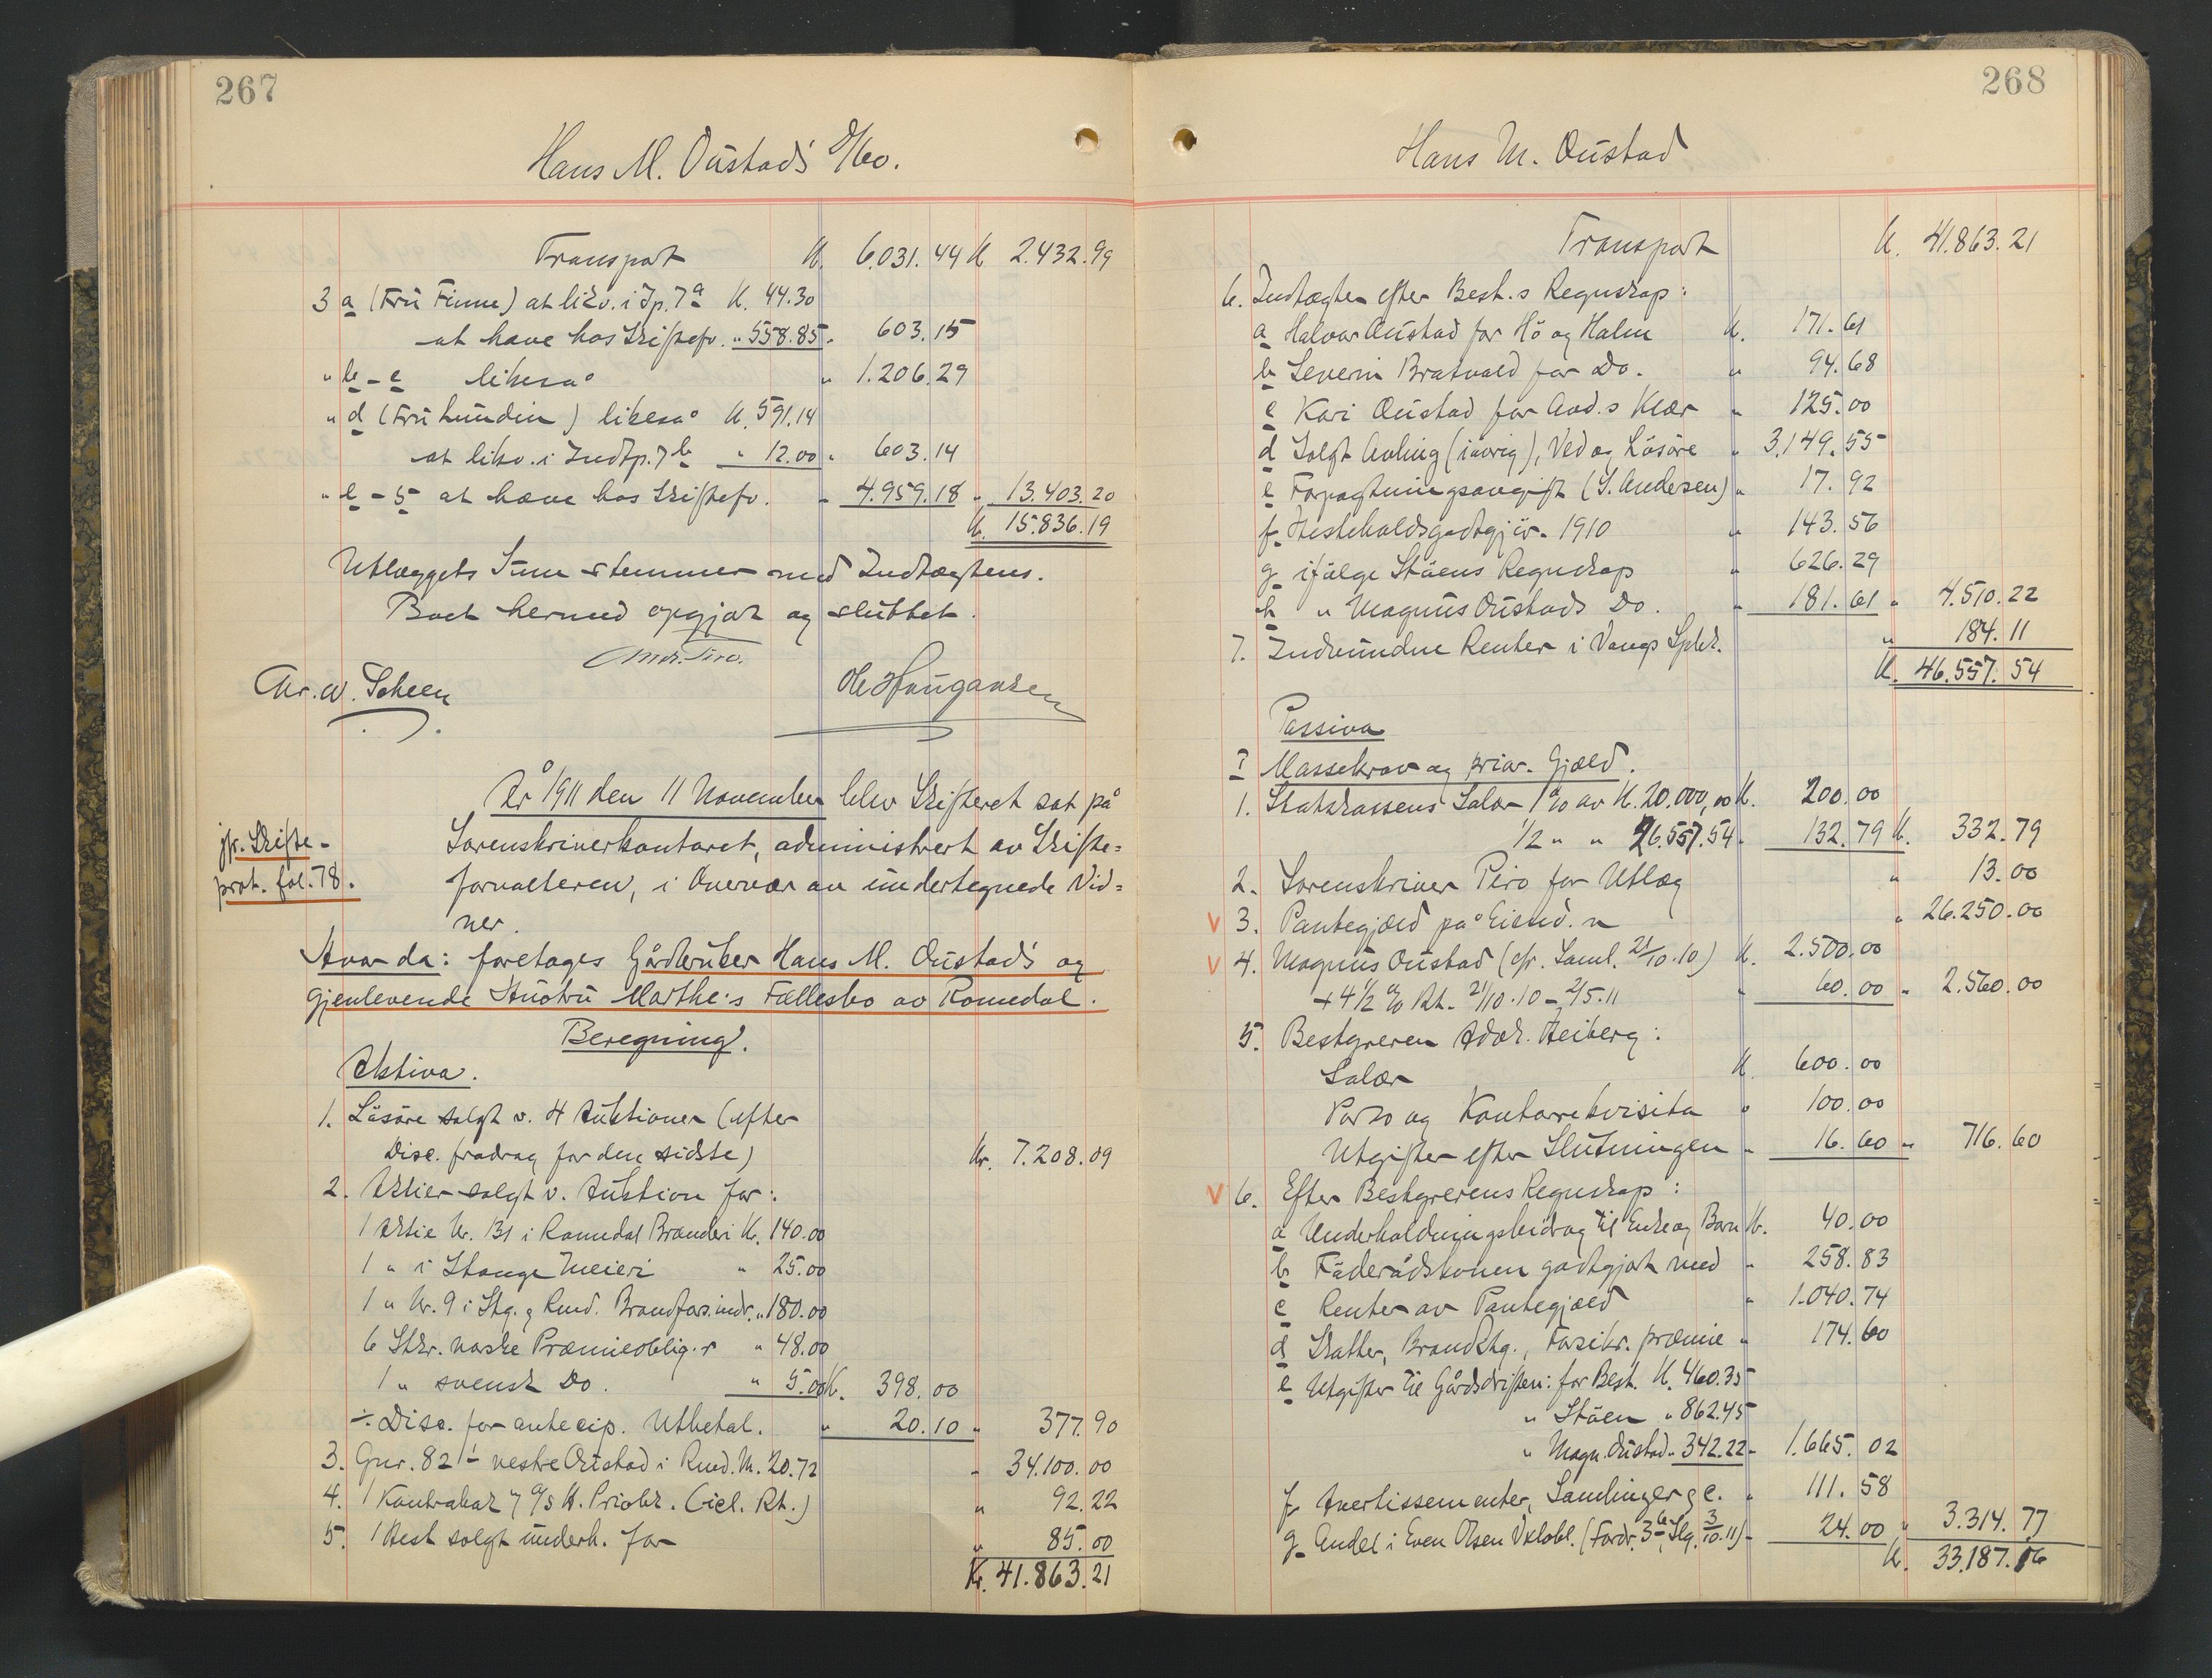 267
Hans M. Oustad's D/bo.
Transport K. 6.031.44 K. 2.432.99
3 a (Fru Finne) at likv. i Ip. 7 a K. 44.30
at hæve hos Skiftefv. " 558.85 " 603.15
" b - c likesaa " 1.206.29
" d (Fru Lundin) likesaa K. 591.14
at likv. i Indtp. 7 b " 12.00 " 603.14
" e - 5 at hæve hos Skiftefv. " 4.959.18 " 13.403.20
K. 15.836.19
Utlæggets Sum stemmer med Indtægtens.
Boet hermed opgjort og sluttet.
And. Piro.
Chr. W. Scheen Ole Haugansen
År 1911 den 11 November blev Skifteret sat på
jfr. Skifte-
prot. fol. 78.
Sorenskriverkontoret, administrert av Skifte=
forvalteren, i Overvær av undertegnede Vid=
ner.
Hvor da: foretages Gårdbruker Hans M. Oustad's og
gjenlevende Hustru Marthe's Fællesbo av Romedal.
Beregning.
Aktiva.
1. Løsøre solgt v. 4 Auktioner (efter
Disc. fradrag for den sidste) Kr. 7.208.09
2. Aktier solgt v. Auktion for:
1 Aktie Nr. 131 i Romedal Brænderi K. 140.00
1 " i Stange Meieri " 25.00
1 " Nr. 9 i Stg. & Rmd. Brandfors.indr. " 180.00
6 Stkr. norske Præmieoblig.r " 48.00
1 " svensk Do. " 5.00 K. 398.00
÷ Disc. for antecip. Utbetal. " 20.10 " 377.90
3. Gnr. 82 1 vestre Oustad i Rmd. M. 20.72 " 34.100.00
4. 1 Kontrabok 7 a/s H. Privbk. (icl. Rt.) " 92.22
5. 1 Hest solgt underh. for " 85.00
Kr. 41.863.21
268
Hans M. Oustad
Transport K. 41.863.21
6. Indtægter efter Best.s Regnskap:
a Halvor Oustad for Hö og Halm K. 171.61
b Severin Bratvold for Do. " 94.68
c Kari Oustad for Avd.s Klær " 125.00
d Solgt Avling (iøvrig), Ved og Løsøre " 3.149.55
e Forpagtningsavgift (S. Andersen) " 17.92
f Hesteholdsgodtgjör. 1910 " 143.56
g ifølge Støens Regnskap " 626.29
h " Magnus Oustads Do. " 181.61 " 4.510.22
7. Indvundne Renter i Vangs Spbk. " 184.11
K. 46.557.54
Passiva
I Massekrav og prior. Gjæld.
1. Statskassens Salær 1% av K. 20.000,00 K. 200.00
1/2 " " 26.557.54 " 132.79 K. 332.79
2. Sorenskriver Piro for Utlæg " 13.00
V 3. Pantegjæld på Eiend.n " 26.250.00
V 4. Magnus Oustad (cfr. Saml. 21/10.10) K. 2.500.00
+ 4 1/2 % Rt. 21/10.10 - 2/5.11 " 60.00 " 2.560.00
5. Bestyreren Advok. Heiberg:
Salær K. 600.00
Porto og Kontorrekvisita " 100.00
Utgifter efter Slutningen " 16.60 " 716.60
V 6. Efter Bestyrerens Regnskap:
a Underholdningsbidrag til Enke og Barn K. 40.00
b Føderådskonen godtgjort med " 258.83
c Renter av Pantegjæld " 1.040.74
d Skatter, Brandktg., Forsikr. præmie " 174.60
e Utgifter til Gårdsdriften: for Best. K. 460.35
" Støen " 862.45
" Magn. Oustad " 342.22 " 1.665.02
f Avertissementer, Samlinger &c. " 111.58
g Andel i Even Olsen (Fordr. 3 b, Slg. 3/10.11) " 24.00 " 3.314.77
K. 33.187.16